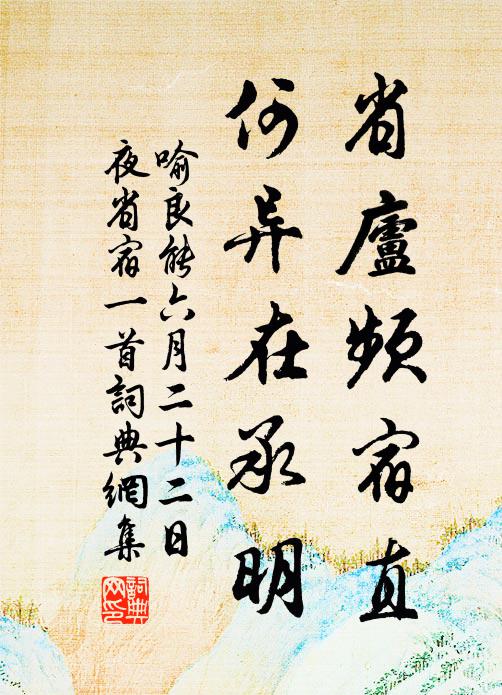 省廬频宿直
何异在承明
喻良能六月二十二日
夜省宿一首詞典網集
詞典
网印